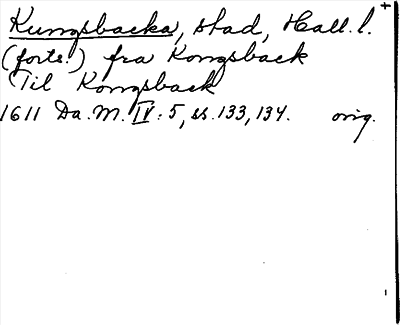 Kungsbacka, stad, Hall. l.
(forts.) fra Kongsback
Til Kongsback
1611 Da. M. IV: 5, ss. 133, 134. orig.